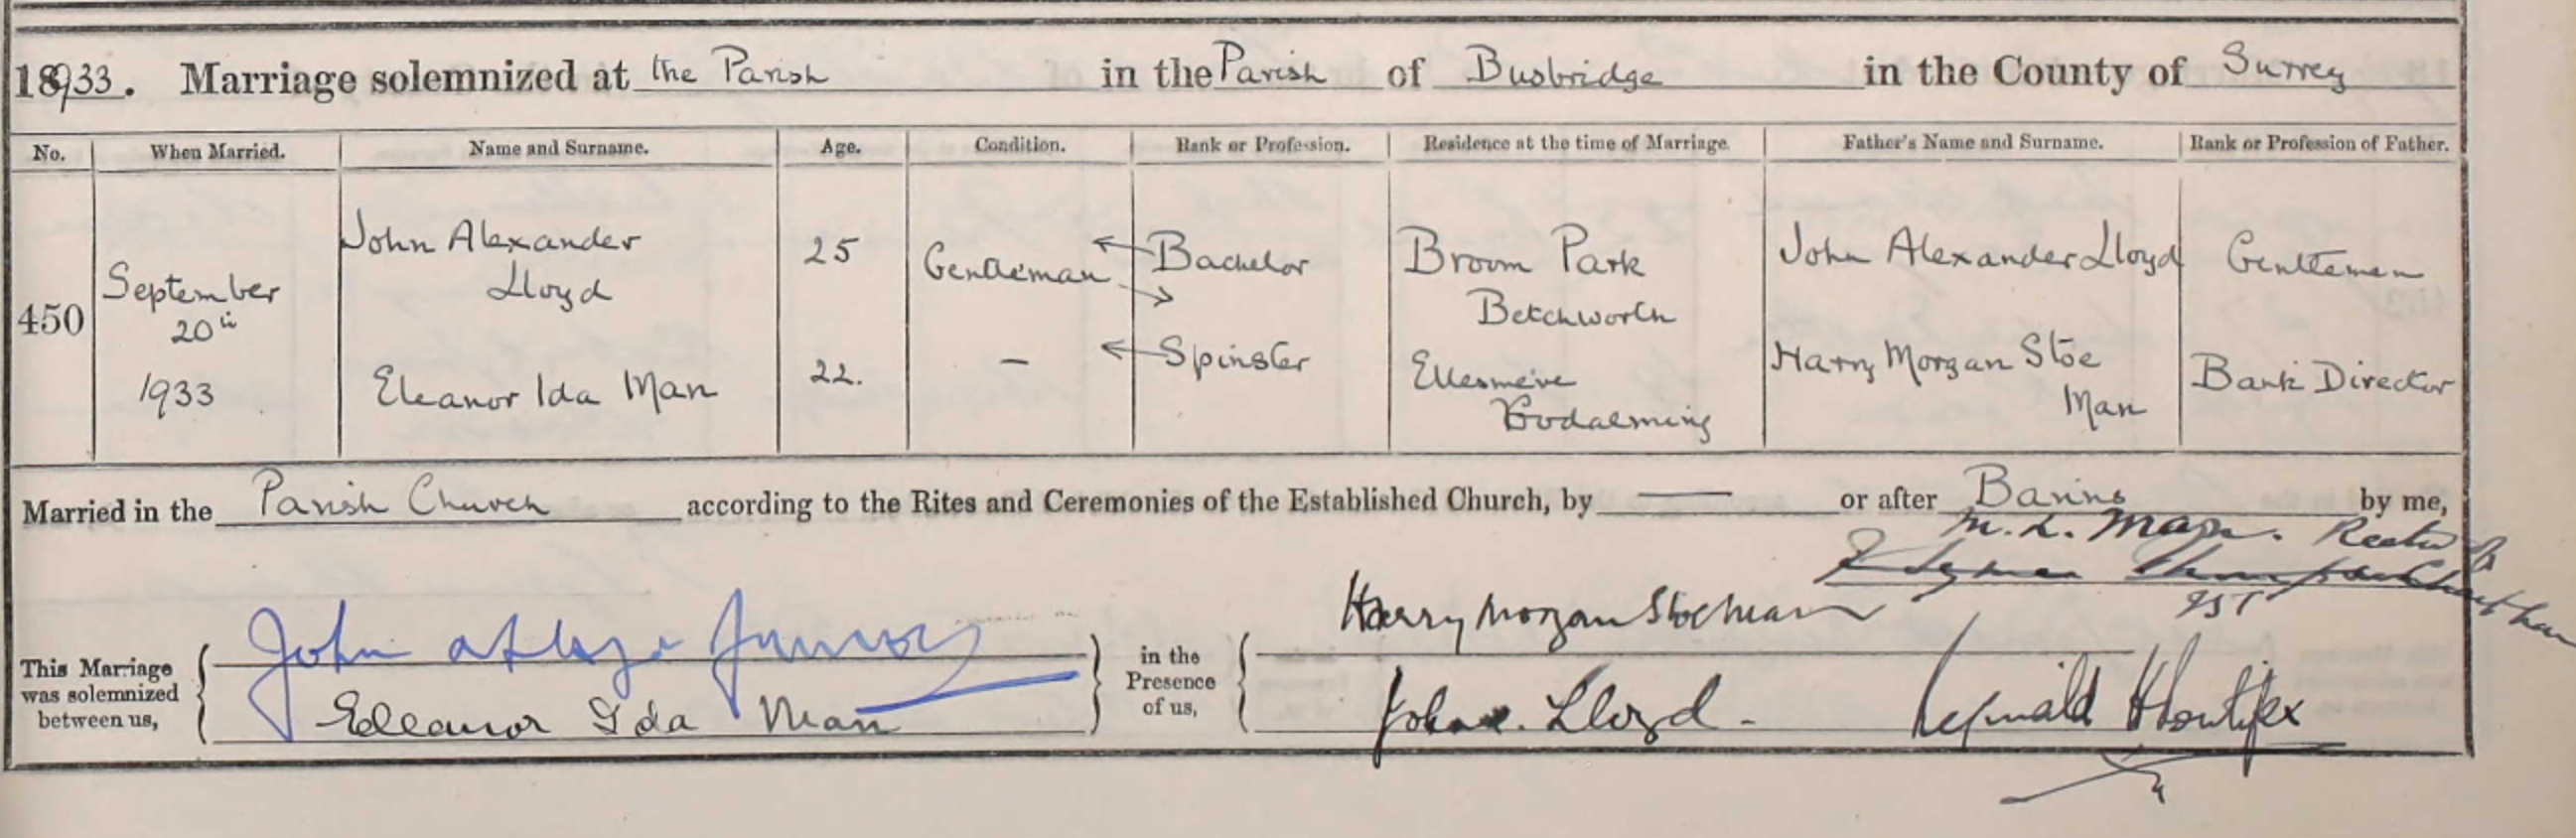 1933. Marriage solemnized at the Parish in the Parish of Busbridge in the County of Surrey
No. When Married. Name and Surname. Age. Condition. Rank or Profession. Residence at the time of Marriage. Father's Name and Surname. Rank or Profession of Father.
450 September 20th 1933
John Alexander Lloyd 25 Gentleman Bachelor Broom Park Betchworth John Alexander Lloyd Gentleman
Eleanor Ida Man 22. – Spinster Ellesmere Godalming Harry Morgan Stoe Man Bank Director
Married in the Parish Church according to the Rites and Ceremonies of the Established Church, by — or after Banns by me,
M. L. Man. Rector
This Marriage was solemnized between us,
John
Eleanor Ida Man
in the Presence of us,
Harry Morgan Stoe Man
John Lloyd.
Reginald